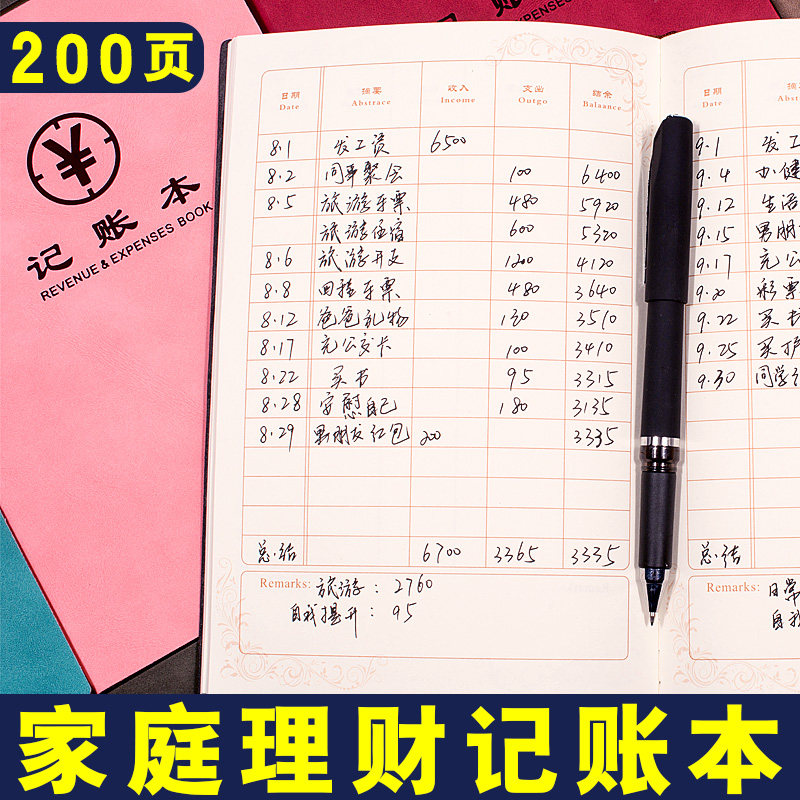 200页
记账本
REVENUE & EXPENSES BOOK
记账
& EXPENSES BOOK
日期 摘要 收入 支出 结余
Date Abstrace Income Outgo Balaance
8.1 发工资 6500
8.2 同事聚会 100 6400
8.5 旅游车票 480 5920
旅游住宿 600 5320
8.6 旅游开支 1200 4120
8.8 回程车票 480 3640
8.12 爸爸礼物 130 3510
8.17 充公交卡 100 3410
8.22 买书 95 3315
8.28 安慰自己 180 3135
8.29 男朋友红包 200 3335
总结 6700 3365 3335
Remarks: 旅游: 2760
自我提升: 95
日期
Date
9.1 发工
9.4 办健
9.12 生活
9.15 男朋
9.17 充公
9.20 彩票
9.22 买书
9.25 买护
9.30 同学
总结
Remarks: 日常
自我
家庭理财记账本